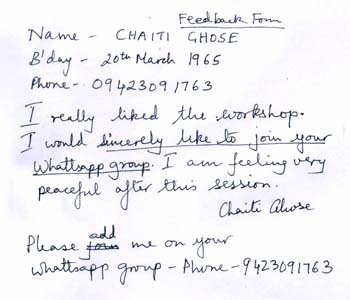 Feedback Form
Name - CHAITI GHOSE
B'day - 20th March 1965
Phone - 09423091763
I really liked the workshop.
I would sincerely like to join your
Whattsapp group. I am feeling very
peaceful after this session.
Chaiti Ghose
Please add me on your
whattsapp group - Phone - 9423091763